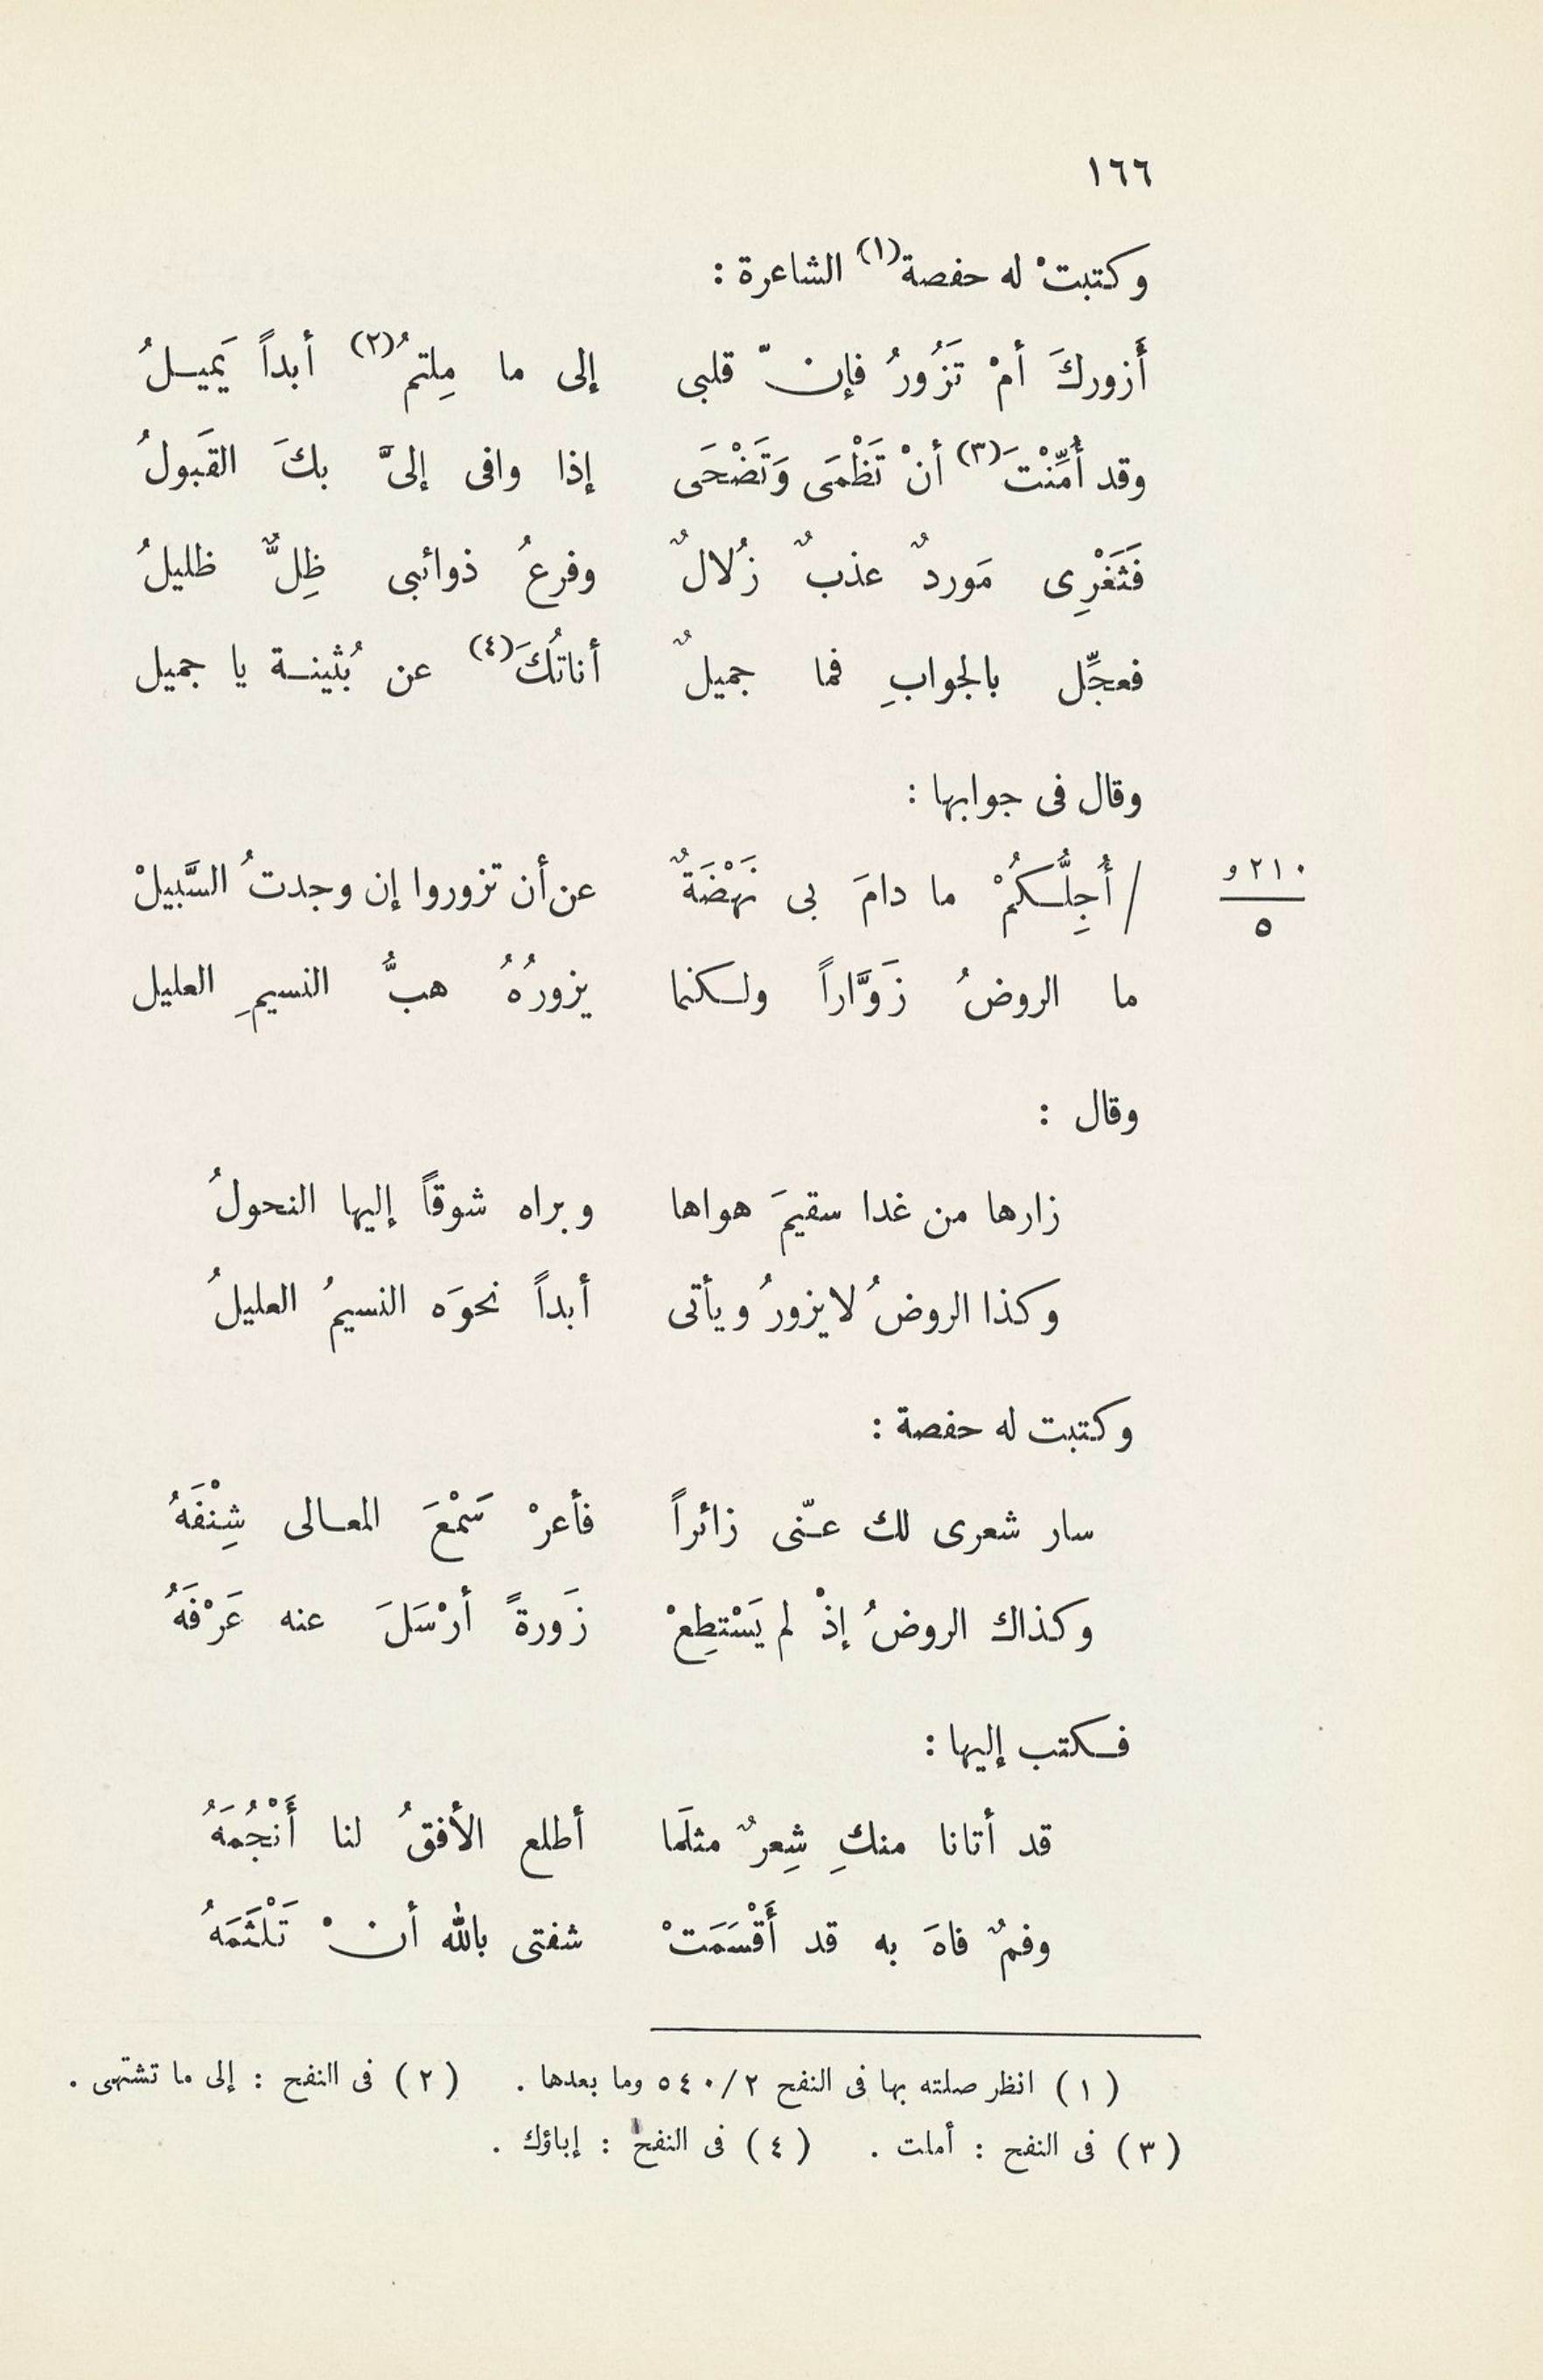 ١٦٦
وكتبتْ له حفصة(١) الشاعرة :
أَزوركَ أمْ تَزُورُ فإنّ قلبى إلى ما مِلتمُ(٢) أبداً يَميلُ
وقد أُمِّنْتَ(٣) أنْ تَظْمَى وَتَضْحَى إذا وافى إلىَّ بكَ القَبولُ
فَثَغْرِى مَوردٌ عذبٌ زُلالٌ وفرعُ ذوائبى ظِلٌّ ظليلُ
فعجِّل بالجوابِ فما جميلٌ أناتُكَ(٤) عن بُثينة يا جميل
وقال فى جوابها :
٢١٠ و
٥
/ أُجِلُّكُمْ ما دامَ بى نَهْضَةٌ عن أن تزوروا إن وجدتُ السَّبيلْ
ما الروضُ زَوَّاراً ولكنما يزورُهُ هبُّ النسيمِ العليل
وقال :
زارها من غدا سقيمَ هواها وبراه شوقاً إليها النحولُ
وكذا الروضُ لايزورُ ويأتى أبداً نحوَه النسيمُ العليلُ
وكتبت له حفصة :
سار شعرى لك عنّى زائراً فأعرْ سَمْعَ المعالى شِنْفَهُ
وكذاك الروضُ إذْ لم يَسْتطِعْ زَورةً أرْسَلَ عنه عَرْفَهُ
فكتب إليها :
قد أتانا منكِ شِعرٌ مثلَما أطلع الأفقُ لنا أَنْجُمَهُ
وفمٌ فاهَ به قد أَقْسَمَتْ شفتى بالله أنْ تَلْثَمَهُ
(١) انظر صلته بها فى النفح ٥٤٠/٢ وما بعدها . (٢) فى النفح : إلى ما تشتهى .
(٣) فى النفح : أملت . (٤) فى النفح : إباؤك .